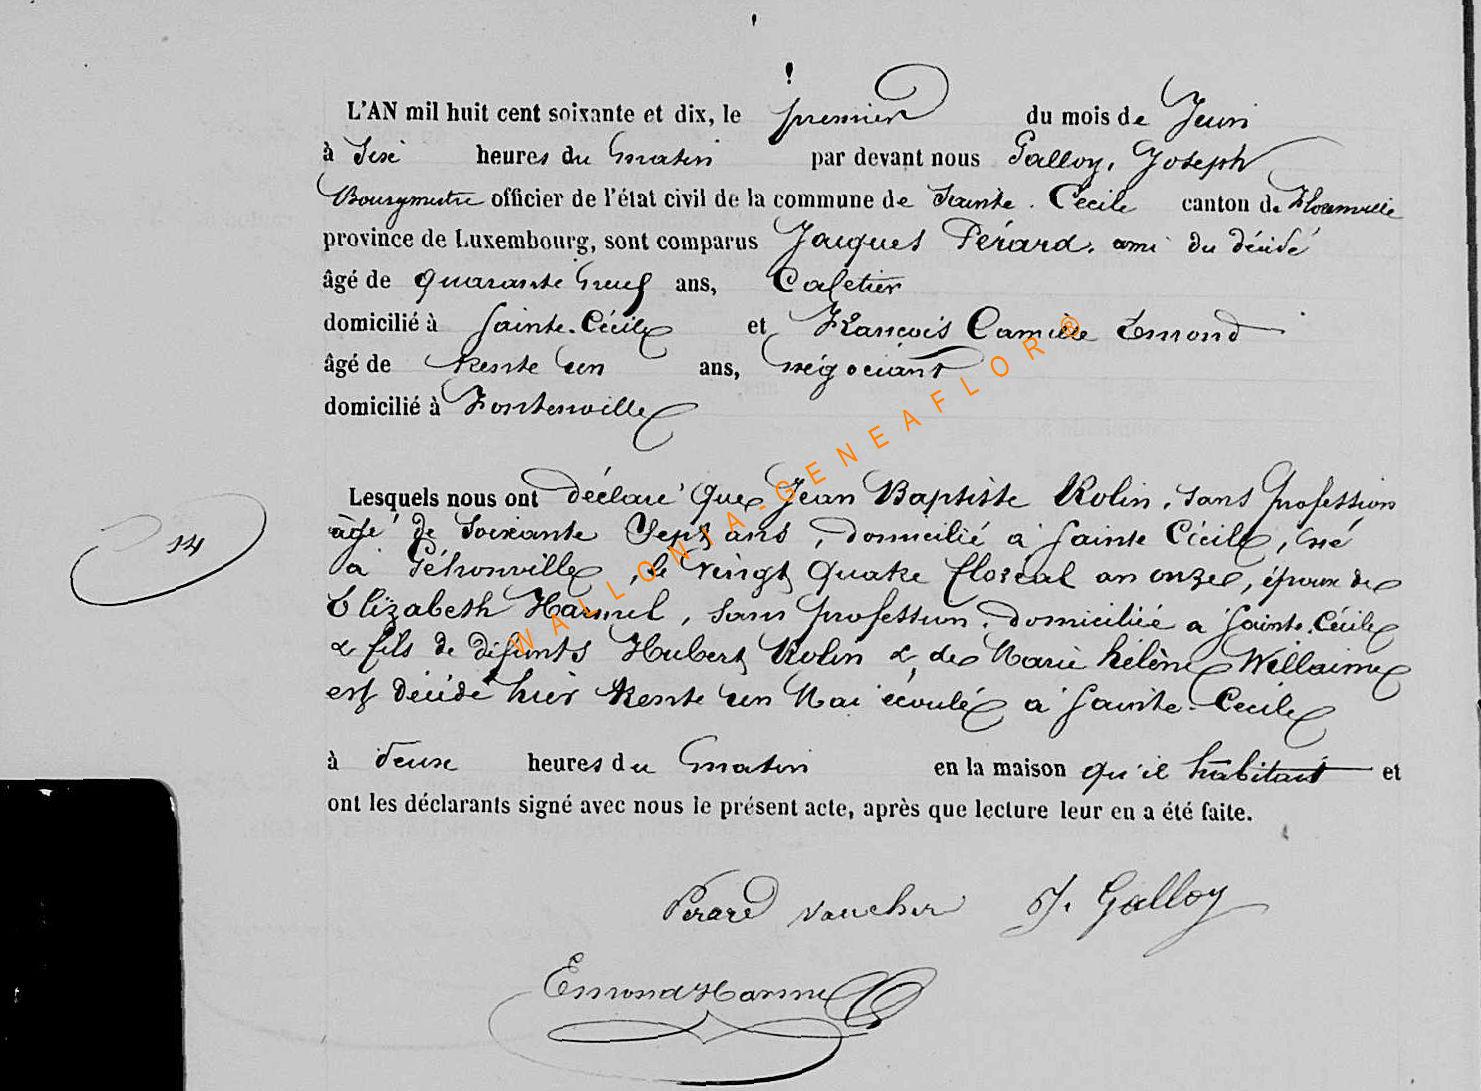 L'AN mil huit cent soixante et dix, le premier du mois de Juin
à Six heures du matin par devant nous Galloy, Joseph
Bourgmestre officier de l'état civil de la commune de Sainte-Cécile canton de Florenville
province de Luxembourg, sont comparus Jacques Pérard, ami du décédé
âgé de quarante neuf ans, Cafetier
domicilié à Sainte-Cécile et François Camille Emond
âgé de trente un ans, négociant
domicilié à Fontenoille
Lesquels nous ont déclaré que Jean Baptiste Rolin, sans profession
âgé de soixante sept ans, domicilié à Sainte Cécile, né
14
à Géhonville, le vingt quatre floréal an onze, époux de
Elizabeth Harmel, sans profession, domiciliée à Sainte-Cécile
& fils de défunts Hubert Rolin & de Marie hélène Willaime
est décédé hier trente un Mai écoulé à Sainte-Cécile
à deux heures du matin en la maison qu'il habitait et
ont les déclarants signé avec nous le présent acte, après que lecture leur en a été faite.
Perard Vaucher J. Galloy
Emond Harmel
WALLONIA-GENEAFLOR ®